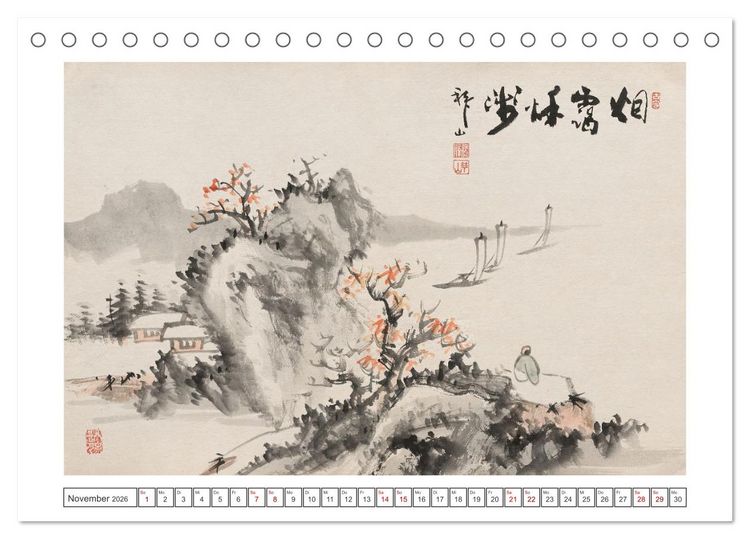 烟靄秋涉
November 2026
So Mo Di Mi Do Fr Sa So Mo Di Mi Do Fr Sa So Mo Di Mi Do Fr Sa So Mo Di Mi Do Fr Sa So Mo
1 2 3 4 5 6 7 8 9 10 11 12 13 14 15 16 17 18 19 20 21 22 23 24 25 26 27 28 29 30